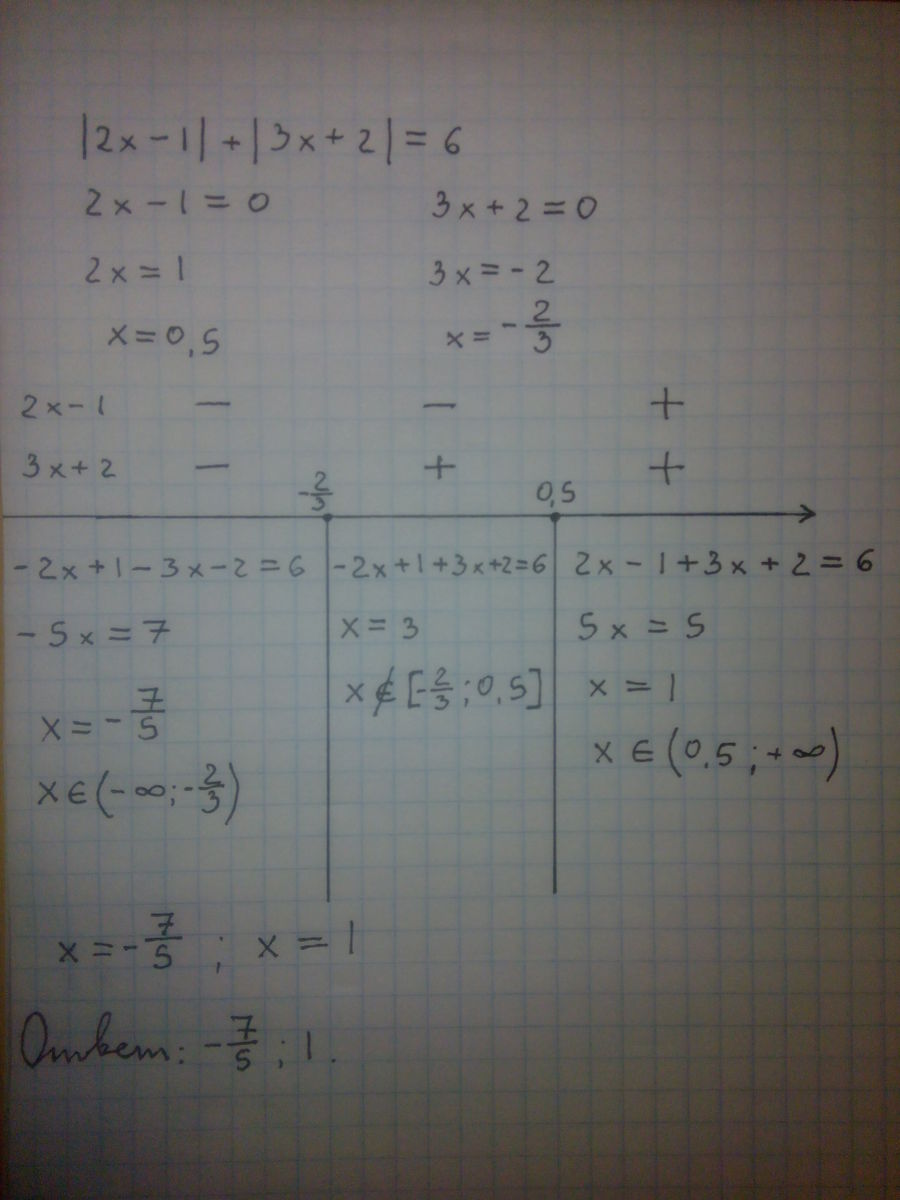 |2x-1|+|3x+2|=6
2x-1=0 3x+2=0
2x=1 3x=-2
x=0,5 x=-2/3
2x-1 - - +
3x+2 - + +
-2/3 0,5
-2x+1-3x-2=6 -2x+1+3x+2=6 2x-1+3x+2=6
-5x=7 x=3 5x=5
x=-7/5 x∉[-2/3;0,5] x=1
x∈(-∞;-2/3) x∈(0,5;+∞)
x=-7/5; x=1
Ответ: -7/5; 1.